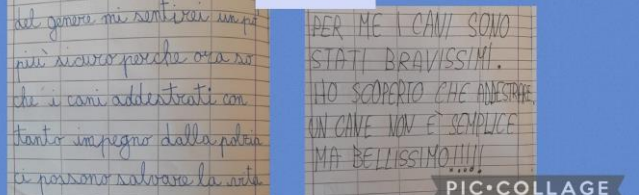 del genere mi sentirei un pò
più sicuro perche ora so
che i cani addestrati con
tanto impegno dalla polizia
ci possono salvare la vita
PER ME I CANI SONO
STATI BRAVISSIMI.
HO SCOPERTO CHE ADDESTRARE,
UN CANE NON È SEMPLICE
MA BELLISSIMO!!!!!
PIC•COLLAGE